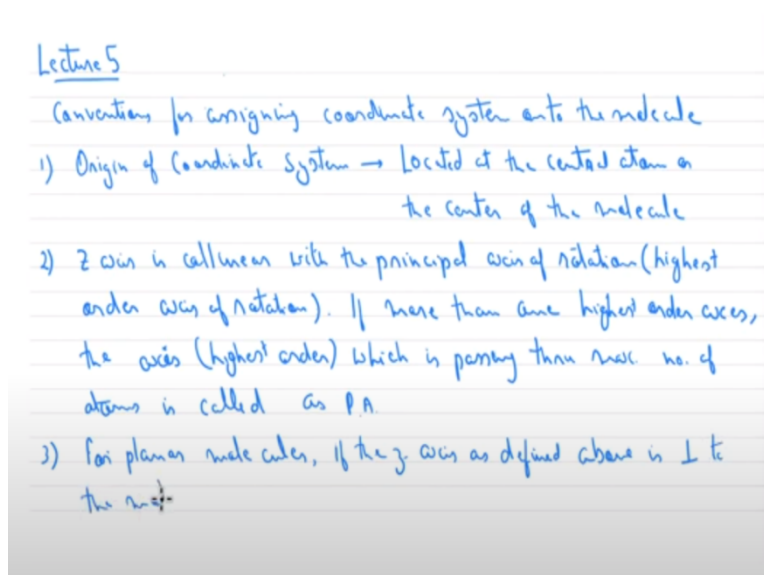 Lecture 5
Conventions for assigning coordinate system onto the molecule
1) Origin of Coordinate System → Located at the central atom or
the center of the molecule
2) Z axis is collinear with the principal axis of rotation (highest
order axis of rotation). If more than one highest order axes,
the axis (highest order) which is passing thru max. no. of
atoms is called as P.A.
3) For planar molecules, if the z axis as defined above is ⊥ to
the mo